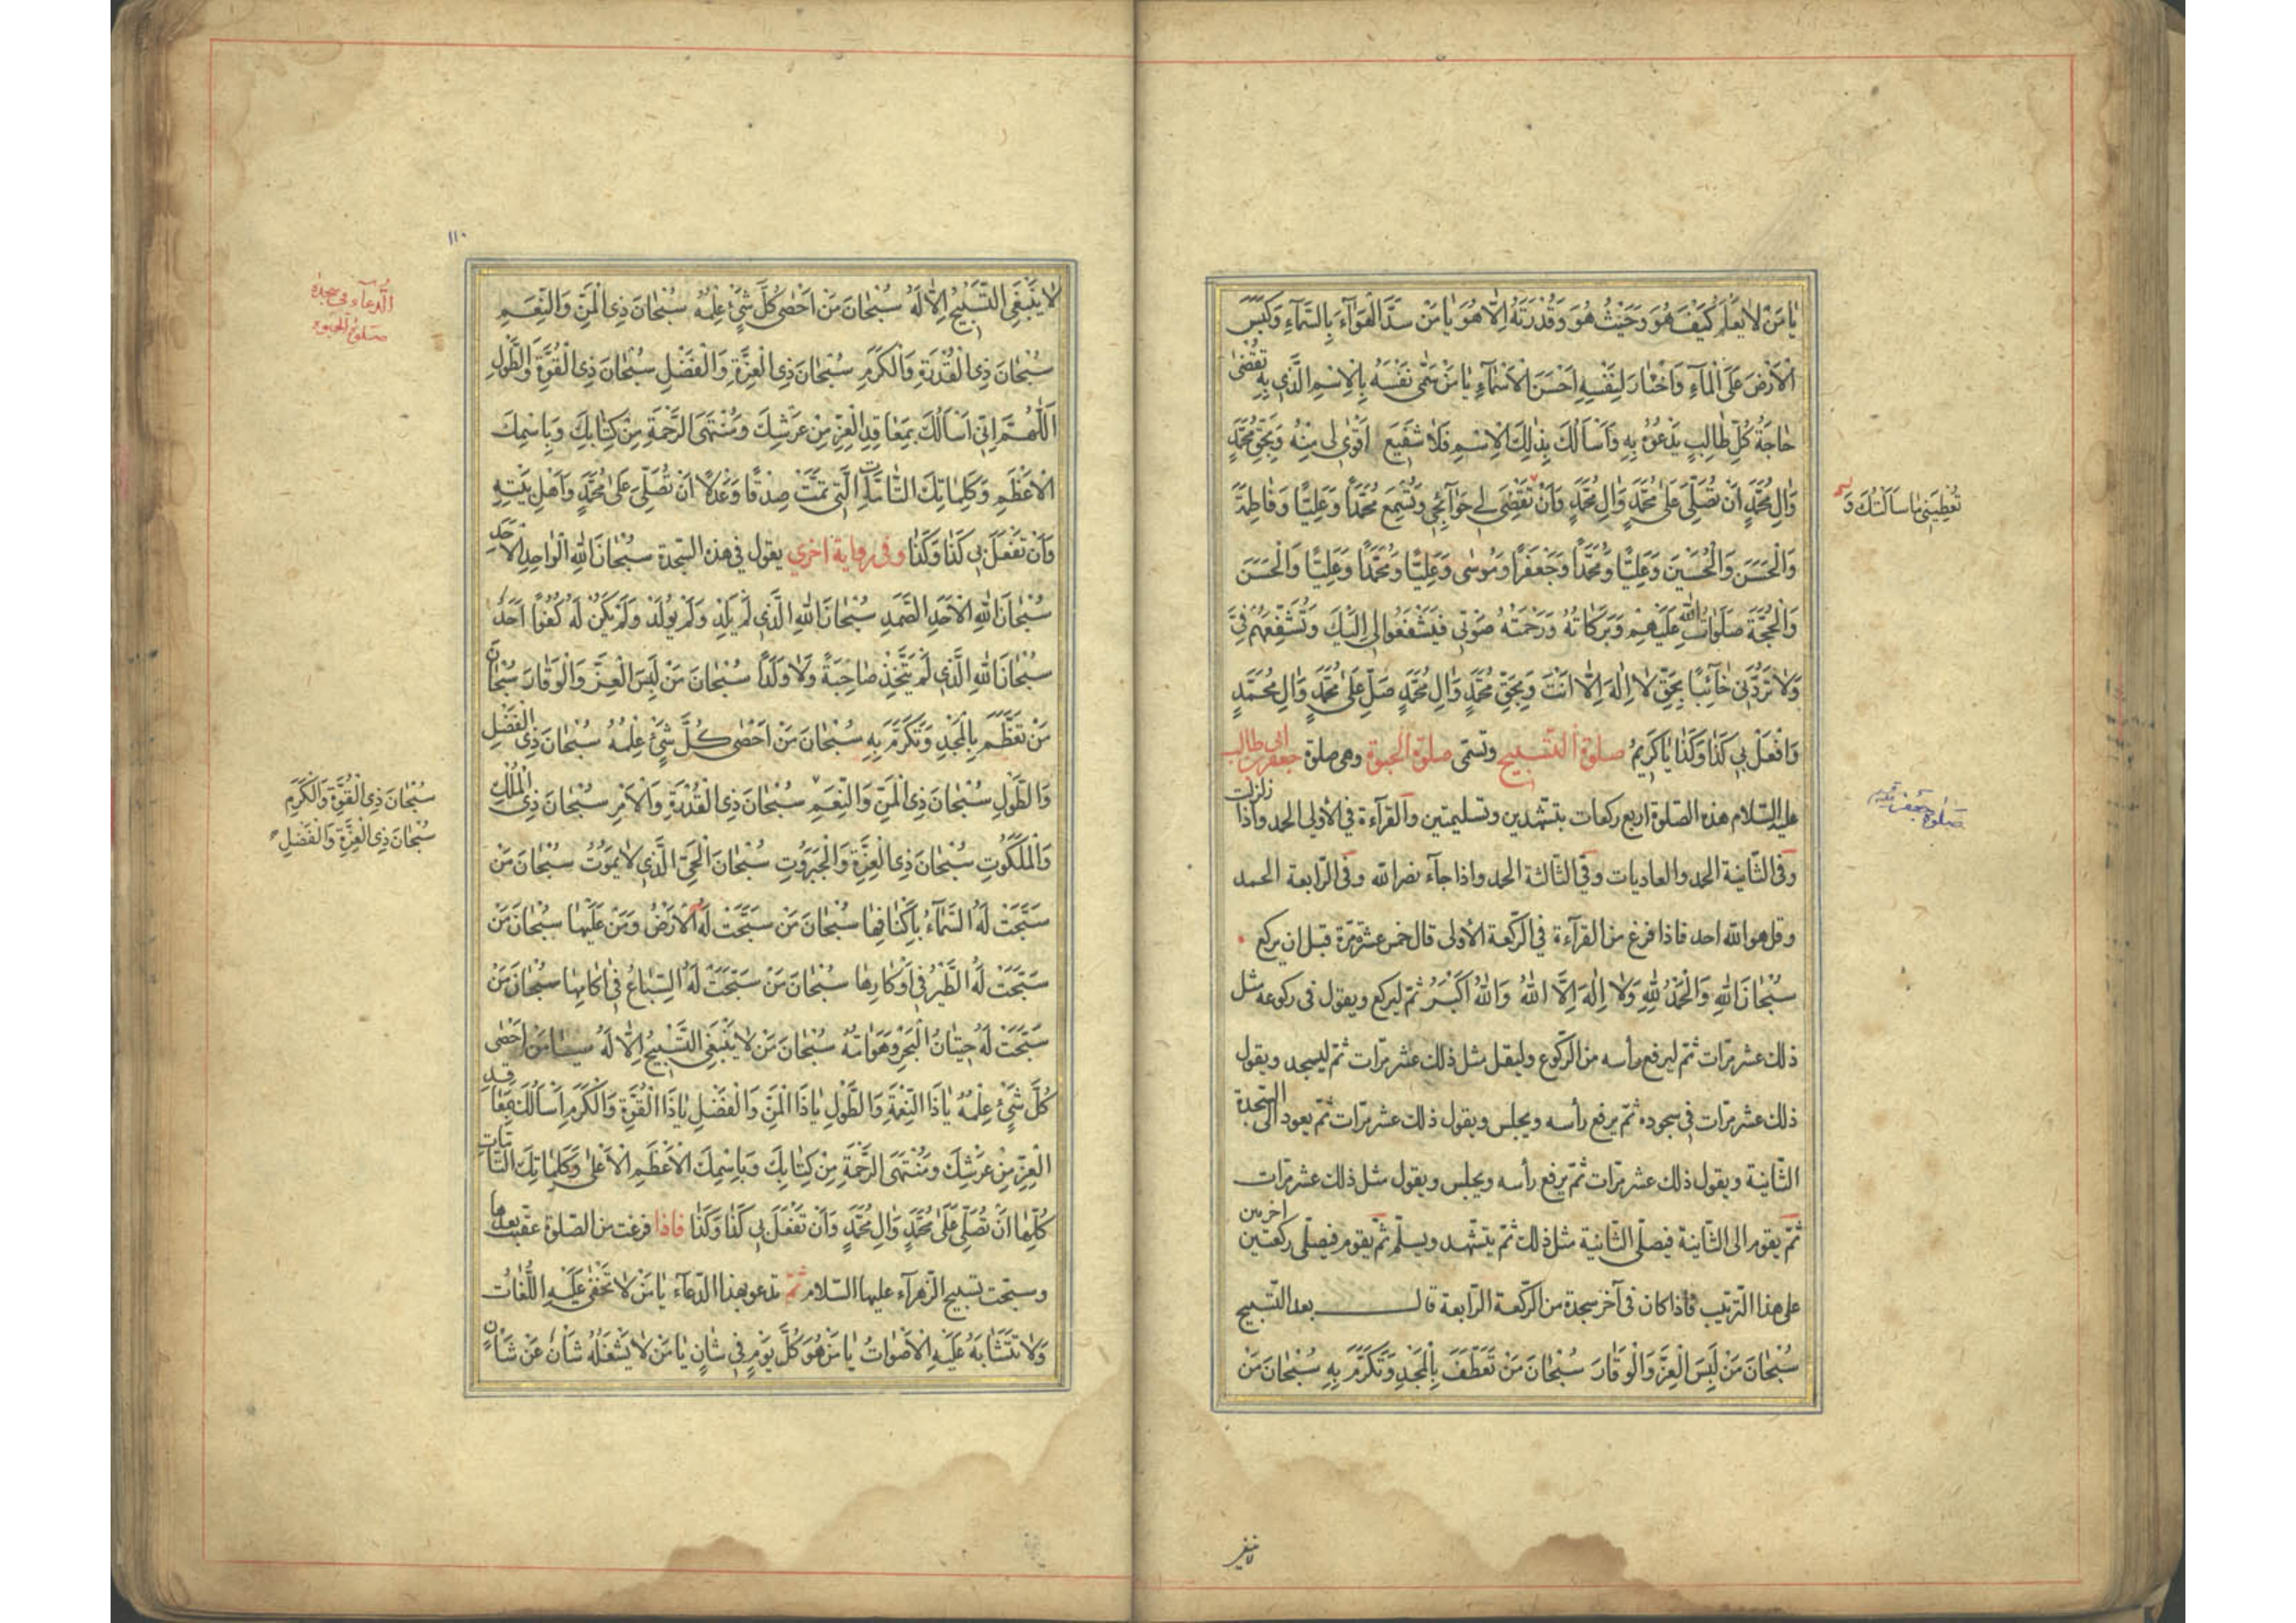 يٰا مَنْ لاٰ يَعْلَمُ كَيْفَ هُوَ وَحَيْثُ هُوَ وَقُدْرَتَهُ اِلّاٰ هُوَ يٰا مَنْ سَدَّ الْهَوٰآءَ بِالسَّمٰآءِ وَكَبَسَ
الْاَرْضَ عَلَى الْمٰآءِ وَاخْتٰارَ لِنَفْسِهِ اَحْسَنَ الْاَسْمٰآءِ يٰا مَنْ سَمّٰى نَفْسَهُ بِالْاِسْمِ الَّذي بِهِ تُقْضٰى
حٰاجَةُ كُلِّ طٰالِبٍ يَدْعُوهُ بِهِ وَاَسْاَلُكَ بِذٰلِكَ الْاِسْمِ فَلاٰ شَفيعَ اَقْوٰى لي مِنْهُ وَبِحَقِّ مُحَمَّدٍ
وَاٰلِ مُحَمَّدٍ اَنْ تُصَلِّيَ عَلىٰ مُحَمَّدٍ وَاٰلِ مُحَمَّدٍ وَاَنْ تَقْضِيَ لي حَوٰآئِجي وَتُسْمِعَ مُحَمَّداً وَعَلِيّاً وَفٰاطِمَةَ
تُعْطِيَني مٰا سَاَلْتُكَ وَ
وَالْحَسَنَ وَالْحُسَيْنَ وَعَلِيّاً وَمُحَمَّداً وَجَعْفَراً وَمُوسٰى وَعَلِيّاً وَمُحَمَّداً وَعَلِيّاً وَالْحَسَنَ
وَالْحُجَّةَ صَلَوٰاتُ اللهِ عَلَيْهِمْ وَبَرَكٰاتُهُ وَرَحْمَتُهُ صَوْتي فَيَشْفَعُوا لي اِلَيْكَ وَتُشَفِّعَهُمْ فِيَّ
وَلاٰ تَرُدَّني خٰآئِباً بِحَقِّ لاٰ اِلٰهَ اِلّاٰ اَنْتَ وَبِحَقِّ مُحَمَّدٍ وَاٰلِ مُحَمَّدٍ صَلِّ عَلىٰ مُحَمَّدٍ وَاٰلِ مُحَمَّدٍ
وَافْعَلْ بي كَذٰا وَكَذٰا يٰا كَريمُ صلوة التّسبيح وتسمّى صلوة الحبوة وهي صلوة جعفر بن ابي طالب
عليه السّلام هذه الصّلوة اربع ركعات بتشهّدين وتسليمتين والقرآءة في الأولى الحمد واذا زلزلت
صلوة جعفر
وفي الثّانية الحمد والعاديات وفي الثّالثة الحمد واذا جآء نصر الله وفي الرّابعة الحمد
وقل هو الله احد فاذا فرغ من القرآءة في الرّكعة الأولى قال خمس عشرة مرّة قبل ان يركع
سُبْحٰانَ اللهِ وَالْحَمْدُ لِلّٰهِ وَلاٰ اِلٰهَ اِلَّا اللهُ وَاللهُ اَكْبَرُ ثمّ ليركع ويقول في ركوعه مثل
ذلك عشر مرّات ثمّ ليرفع رأسه من الرّكوع وليقل مثل ذلك عشر مرّات ثمّ ليسجد ويقول
ذلك عشر مرّات في سجوده ثمّ يرفع رأسه ويجلس ويقول ذلك عشر مرّات ثمّ يعود الى السّجدة
الثّانية ويقول ذلك عشر مرّات ثمّ يرفع رأسه ويجلس ويقول مثل ذلك عشر مرّات
ثمّ يقوم الى الثّانية فيصلّي الثّانية مثل ذلك ثمّ يتشهّد ويسلّم ثمّ يقوم فيصلّي ركعتين اخرىين
على هذا التّرتيب فاذا كان في آخر سجدة من الرّكعة الرّابعة قال بعد التّسبيح
سُبْحٰانَ مَنْ لَبِسَ الْعِزَّ وَالْوَقٰارَ سُبْحٰانَ مَنْ تَعَطَّفَ بِالْمَجْدِ وَتَكَرَّمَ بِهِ سُبْحٰانَ مَنْ
لا ينبغي
١١٠
الدّعآء في سجدة
صلوة الحبوة
لاٰ يَنْبَغِي التَّسْبيحُ اِلّاٰ لَهُ سُبْحٰانَ مَنْ اَحْصٰى كُلَّ شَيْءٍ عِلْمُهُ سُبْحٰانَ ذِي الْمَنِّ وَالنِّعَمِ
سُبْحٰانَ ذِي الْقُدْرَةِ وَالْكَرَمِ سُبْحٰانَ ذِي الْعِزَّةِ وَالْفَضْلِ سُبْحٰانَ ذِي الْقُوَّةِ وَالطَّوْلِ
اَللّٰهُمَّ اِنّي اَسْاَلُكَ بِمَعٰاقِدِ الْعِزِّ مِنْ عَرْشِكَ وَمُنْتَهَى الرَّحْمَةِ مِنْ كِتٰابِكَ وَبِاسْمِكَ
الْاَعْظَمِ وَكَلِمٰاتِكَ التّٰامَّةِ الَّتي تَمَّتْ صِدْقاً وَعَدْلاً اَنْ تُصَلِّيَ عَلىٰ مُحَمَّدٍ وَاَهْلِ بَيْتِهِ
وَاَنْ تَفْعَلَ بي كَذٰا وَكَذٰا وفي رواية اخرى يقول في هذه السّجدة سُبْحٰانَ اللهِ الْوٰاحِدِ الْاَحَدِ
سُبْحٰانَ اللهِ الْاَحَدِ الصَّمَدِ سُبْحٰانَ اللهِ الَّذي لَمْ يَلِدْ وَلَمْ يُولَدْ وَلَمْ يَكُنْ لَهُ كُفُواً اَحَدٌ
سُبْحٰانَ اللهِ الَّذي لَمْ يَتَّخِذْ صٰاحِبَةً وَلاٰ وَلَداً سُبْحٰانَ مَنْ لَبِسَ الْعِزَّ وَالْوَقٰارَ سُبْحٰانَ
مَنْ تَعَظَّمَ بِالْمَجْدِ وَتَكَرَّمَ بِهِ سُبْحٰانَ مَنْ اَحْصٰى كُلَّ شَيْءٍ عِلْمُهُ سُبْحٰانَ ذِي الْفَضْلِ
وَالطَّوْلِ سُبْحٰانَ ذِي الْمَنِّ وَالنِّعَمِ سُبْحٰانَ ذِي الْقُدْرَةِ وَالْاَمْرِ سُبْحٰانَ ذِي الْمُلْكِ
سُبْحٰانَ ذِي الْقُوَّةِ وَالْكَرَمِ
سُبْحٰانَ ذِي الْعِزَّةِ وَالْفَضْلِ
وَالْمَلَكُوتِ سُبْحٰانَ ذِي الْعِزَّةِ وَالْجَبَرُوتِ سُبْحٰانَ الْحَيِّ الَّذي لاٰ يَمُوتُ سُبْحٰانَ مَنْ
سَبَّحَتْ لَهُ السَّمٰآءُ بِاَكْنٰافِهٰا سُبْحٰانَ مَنْ سَبَّحَتْ لَهُ الْاَرْضُ وَمَنْ عَلَيْهٰا سُبْحٰانَ مَنْ
سَبَّحَتْ لَهُ الطَّيْرُ في اَوْكٰارِهٰا سُبْحٰانَ مَنْ سَبَّحَتْ لَهُ السِّبٰاعُ في اٰكٰامِهٰا سُبْحٰانَ مَنْ
سَبَّحَتْ لَهُ حيتٰانُ الْبَحْرِ وَهَوٰامُّهُ سُبْحٰانَ مَنْ لاٰ يَنْبَغِي التَّسْبيحُ اِلّاٰ لَهُ سُبْحٰانَ مَنْ اَحْصٰى
كُلَّ شَيْءٍ عِلْمُهُ يٰا ذَا النِّعْمَةِ وَالطَّوْلِ يٰا ذَا الْمَنِّ وَالْفَضْلِ يٰا ذَا الْقُوَّةِ وَالْكَرَمِ اَسْاَلُكَ بِمَعٰاقِدِ
الْعِزِّ مِنْ عَرْشِكَ وَمُنْتَهَى الرَّحْمَةِ مِنْ كِتٰابِكَ وَبِاسْمِكَ الْاَعْظَمِ الْاَعْلىٰ وَكَلِمٰاتِكَ التّٰامّٰاتِ
كُلِّهٰا اَنْ تُصَلِّيَ عَلىٰ مُحَمَّدٍ وَاٰلِ مُحَمَّدٍ وَاَنْ تَفْعَلَ بي كَذٰا وَكَذٰا فاذا فرغت من الصّلوة عقّبت بعدها
وسبّحت تسبيح الزّهرآء عليها السّلام ثمّ تدعو بهذا الدّعآء يٰا مَنْ لاٰ تَخْفٰى عَلَيْهِ اللُّغٰاتُ
وَلاٰ تَتَشٰابَهُ عَلَيْهِ الْاَصْوٰاتُ يٰا مَنْ هُوَ كُلَّ يَوْمٍ في شٰانٍ يٰا مَنْ لاٰ يَشْغَلُهُ شَاْنٌ عَنْ شَاْنٍ